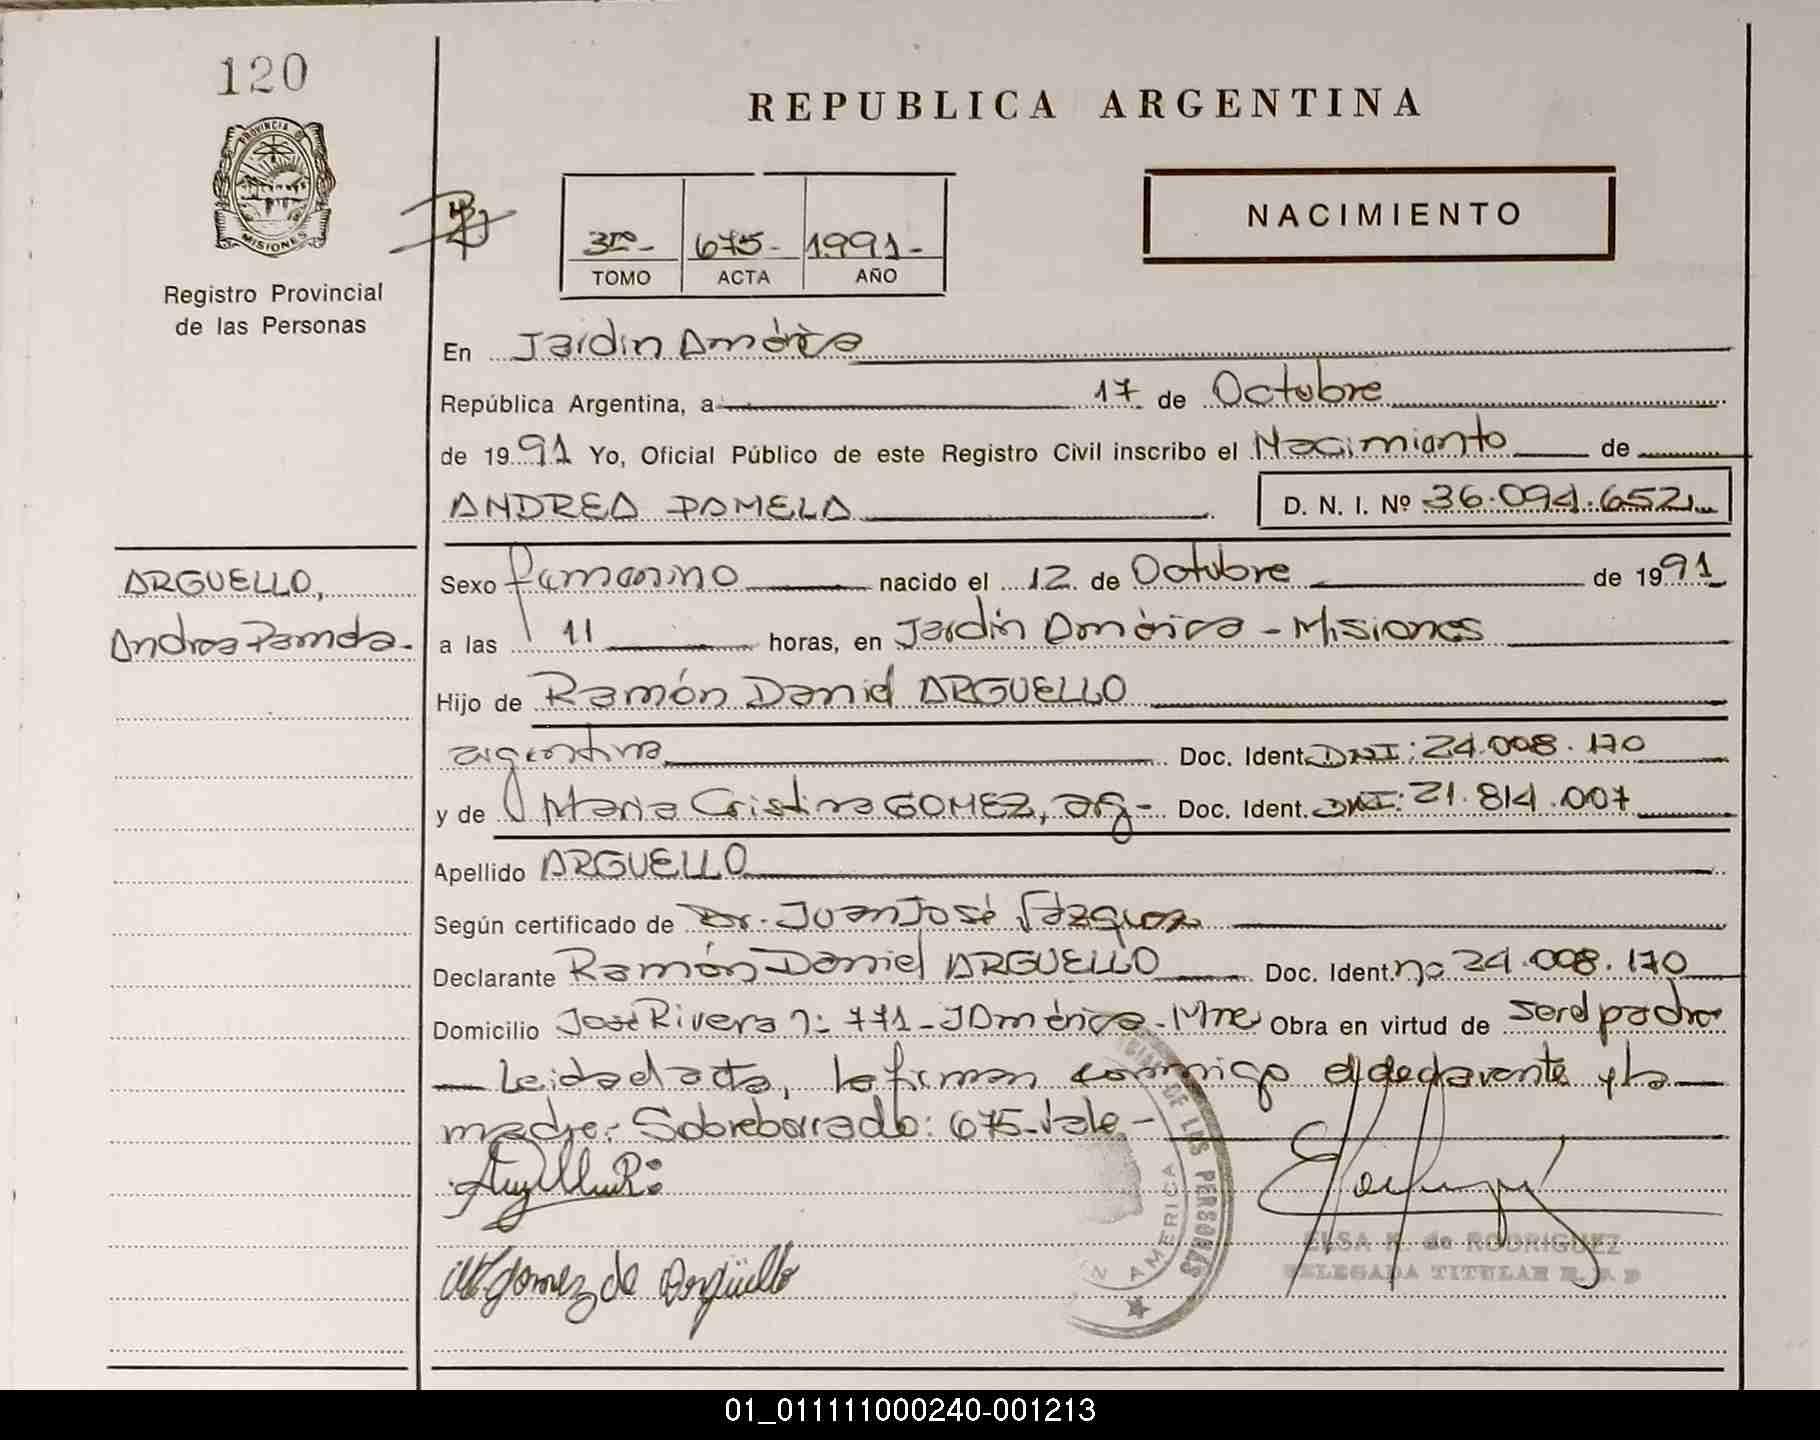 120
REPUBLICA ARGENTINA
PROVINCIA DE
MISIONES
Registro Provincial
de las Personas
3ro- 675- 1991-
TOMO ACTA AÑO
NACIMIENTO
En Jardín América
República Argentina, a 17 de Octubre
de 1991 Yo, Oficial Público de este Registro Civil inscribo el Nacimiento de
ANDREA PAMELA D. N. I. Nº 36.094.652
ARGUELLO,
Andrea Pamela-
Sexo femenino nacido el 12 de Octubre de 1991
a las 11 horas, en Jardín América - Misiones
Hijo de Ramón Daniel ARGUELLO
argentino Doc. Ident. DNI: 24.008.170
y de María Cristina GOMEZ, arg- Doc. Ident. DNI: 21.814.007
Apellido ARGUELLO
Según certificado de Dr. Juan José Vázquez
Declarante Ramón Daniel ARGUELLO Doc. Ident. nº 24.008.170
Domicilio José Rivera nº: 771 - J América - Mnes Obra en virtud de ser el padre
Leida el acta, la firman conmigo el declarante y la
madre.- Sobreborrado: 675-Vale-
DE LAS PERSONAS
AMERICA
M Gomez de Argüello
ELSA K. de RODRIGUEZ
DELEGADA TITULAR R. P. P
01_011111000240-001213